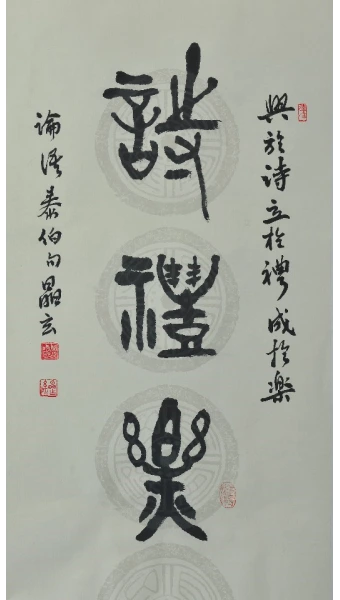 興於詩立於禮成於樂
詩
禮
樂
論語泰伯句晶玄